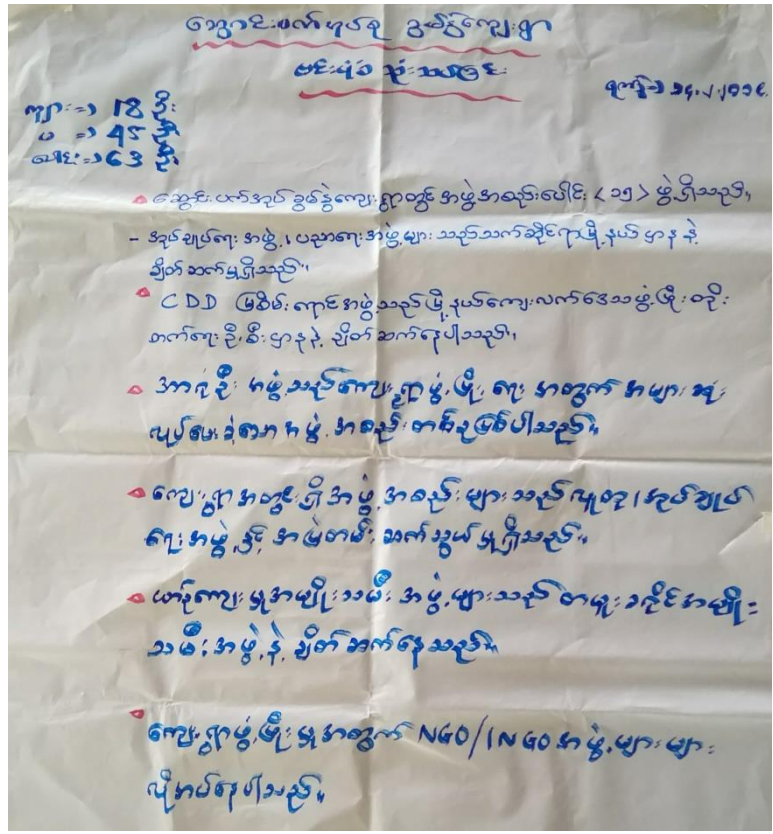 ဆွေးပက်အုပ်စု ခွမ်နွဲကျေးရွာ
ဗင်းပုံစံ သုံးသပ်ခြင်း
ကျား => 18 ဦး
မ => 45 ဦး
ပေါင်း => 63 ဦး
ဆွေးပက်အုပ် ခွမ်နွဲကျေးရွာတွင် အဖွဲ့အစည်းပေါင်း <၁၅> ဖွဲ့ရှိသည်။
- အုပ်ချုပ်ရေး အဖွဲ့၊ ပညာရေးအဖွဲ့များ သည်သက်ဆိုင်ရာမြို့နယ်ဌာနနဲ့
ချိတ်ဆက်မှုရှိသည်။
CDD မြစိမ်းရောင်အဖွဲ့သည်မြို့နယ်ကျေးလက်ဒေသဖွံ့ဖြိုးတိုး
တက်ရေးဦးစီးဌာနနဲ့ ချိတ်ဆက်နေပါသည်။
အာရုံဦး အဖွဲ့သည်ကျေးရွာဖွံ့ဖြိုးရေး အတွက် အများဆုံး
လုပ်ပေးခဲ့သော အဖွဲ့အစည်းတစ်ခုဖြစ်ပါသည်။
ကျေးရွာအတွင်းရှိ အဖွဲ့အစည်းများသည် လူထု၊ အုပ်ချုပ်
ရေးအဖွဲ့နှင့် အမြဲတမ်းဆက်သွယ်မှုရှိသည်။
ယာဉ်ကျေးမှုအမျိုးသမီး အဖွဲ့များသည် တမူးခရိုင်အမျိုး
သမီးအဖွဲ့နဲ့ ချိတ်ဆက်နေသည်။
ကျေးရွာဖွံ့ဖြိုးမှုအတွက် NGO/INGO အဖွဲ့များများ
လိုအပ်နေပါသည်။